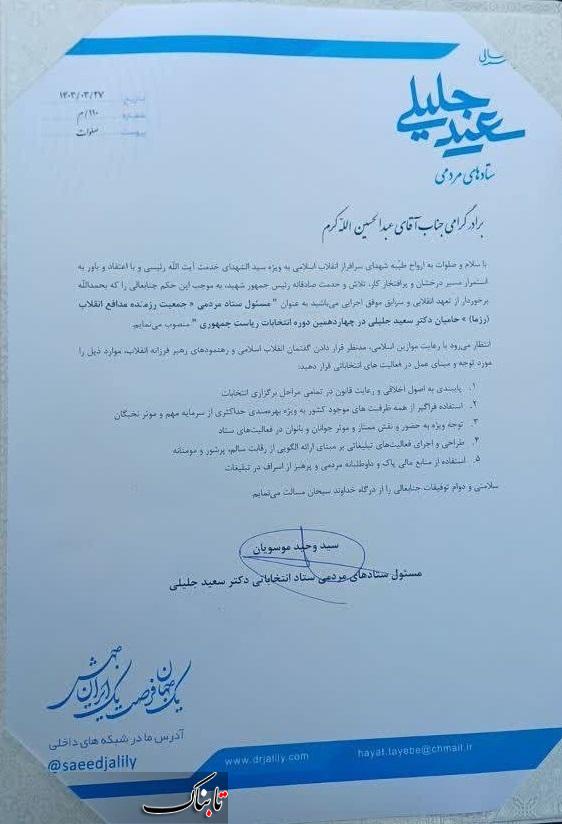 سعید جلیلی
ستادهای مردمی
تاریخ: ۱۴۰۳/۰۳/۲۷
شماره: ۱۱۰/م
پیوست: صلوات
برادر گرامی جناب آقای عبدالحسین الله کرم
با سلام و صلوات به ارواح طیّبه شهدای سرافراز انقلاب اسلامی به ویژه سید الشهدای خدمت آیت الله رئیسی و با اعتقاد و باور به
استمرار مسیر درخشان و پرافتخار کار، تلاش و خدمت صادقانه رئیس جمهور شهید، به موجب این حکم جنابعالی را که بحمدالله
برخوردار از تعهد انقلابی و سوابق موفق اجرایی می‌باشید به عنوان " مسئول ستاد مردمی « جمعیت رزمنده مدافع انقلاب
(رزما) » حامیان دکتر سعید جلیلی در چهاردهمین دوره انتخابات ریاست جمهوری " منصوب می‌نمایم.
انتظار می‌رود با رعایت موازین اسلامی، مدنظر قرار دادن گفتمان انقلاب اسلامی و رهنمودهای رهبر فرزانه انقلاب، موارد ذیل را
مورد توجه و مبنای عمل در فعالیت های انتخاباتی قرار دهید:
۱. پایبندی به اصول اخلاقی و رعایت قانون در تمامی مراحل برگزاری انتخابات
۲. استفاده فراگیر از همه ظرفیت های موجود کشور به ویژه بهره‌مندی حداکثری از سرمایه مهم و موثر نخبگان
۳. توجه ویژه به حضور و نقش ممتاز و موثر جوانان و بانوان در فعالیت‌های ستاد
۴. طراحی و اجرای فعالیت‌های تبلیغاتی بر مبنای ارائه الگویی از رقابت سالم، پرشور و مومنانه
۵. استفاده از منابع مالی پاک و داوطلبانه مردمی و پرهیز از اسراف در تبلیغات
سلامتی و دوام توفیقات جنابعالی را از درگاه خداوند سبحان مسالت می‌نمایم.
سید وحید موسویان
مسئول ستادهای مردمی ستاد انتخاباتی دکتر سعید جلیلی
یک جهان فرصت یک ایران جهش
آدرس ما در شبکه های داخلی
@saeedjalily
www.drjalily.com
hayat.tayebe@chmail.ir
تابناک